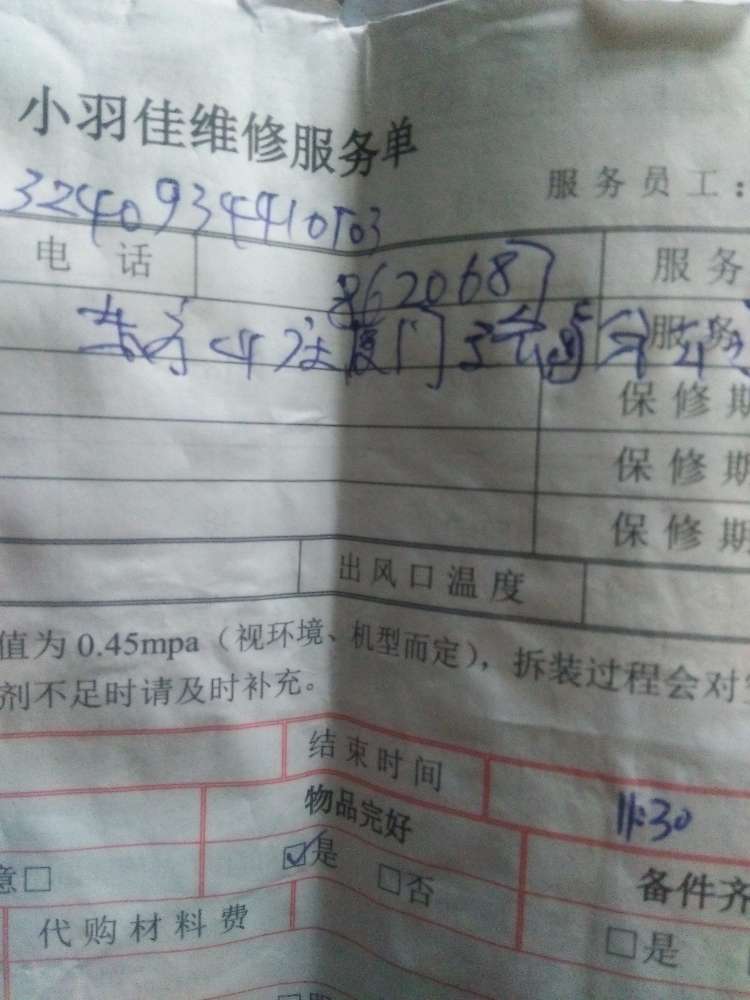 小羽佳维修服务单
服务员工：
3240934410503
电话
8620687
服务
厦门
服务
保修期
保修期
保修期
出风口温度
值为0.45mpa（视环境、机型而定），拆装过程会对
剂不足时请及时补充。
结束时间
11:30
物品完好
意□
☑是
□否
备件齐
代购材料费
□是